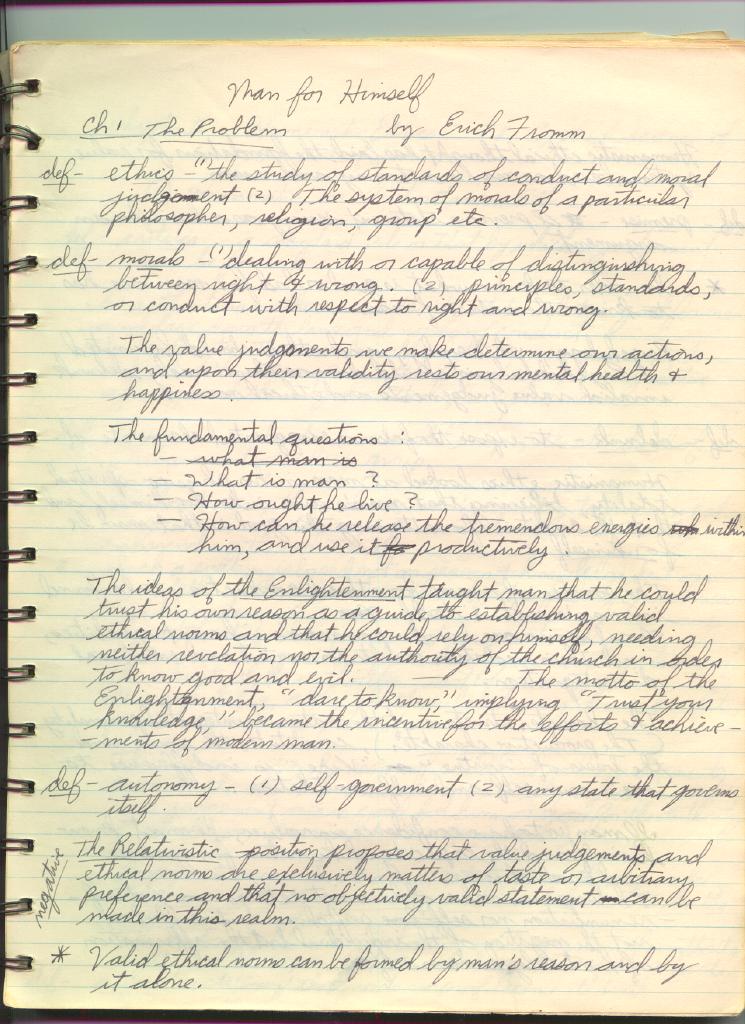 Man for Himself
Ch 1 The Problem by Erich Fromm
def- ethics - "(1) the study of standards of conduct and moral
judgement (2) The system of morals of a particular
philosopher, religion, group etc.
def- morals - (1) dealing with or capable of distinguishing
between right & wrong. (2) principles, standards,
or conduct with respect to right and wrong.
The value judgements we make determine our actions,
and upon their validity rests our mental health &
happiness.
The fundamental questions :
- what man is
- What is man ?
- How ought he live ?
- How can he release the tremendous energies within
him, and use it productively.
The ideas of the Enlightenment taught man that he could
trust his own reason as a guide to establishing valid
ethical norms and that he could rely on himself, needing
neither revelation nor the authority of the church in order
to know good and evil. The motto of the
Enlightenment, "dare to know," implying "Trust your
knowledge," became the incentive for the efforts & achieve-
-ments of modern man.
def- autonomy - (1) self-government (2) any state that governs
itself.
negative
The Relativistic position proposes that value judgements and
ethical norms are exclusively matters of taste or arbitrary
preference and that no objectively valid statement can be
made in this realm.
* Valid ethical norms can be formed by man's reason and by
it alone.